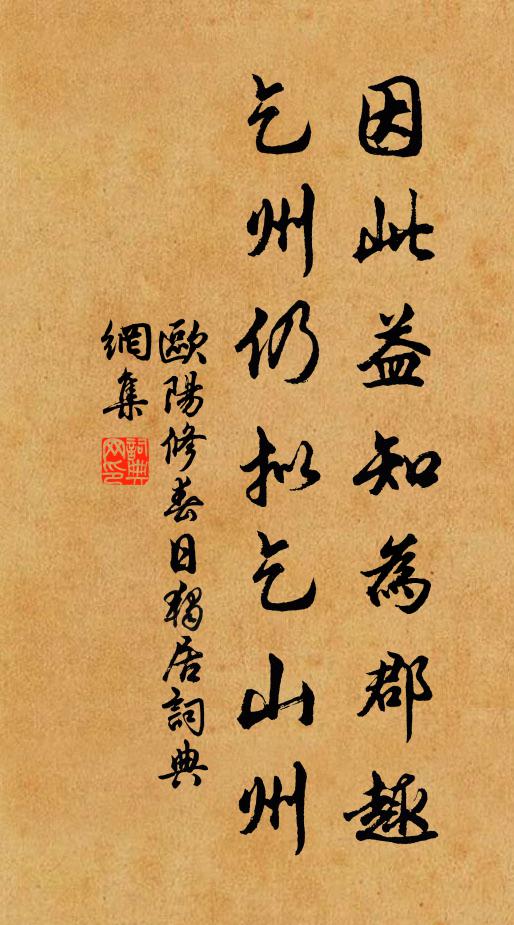 因此益知為郡趣
乞州仍拟乞山州
歐陽修春日獨居詞典
網集
詞典网印